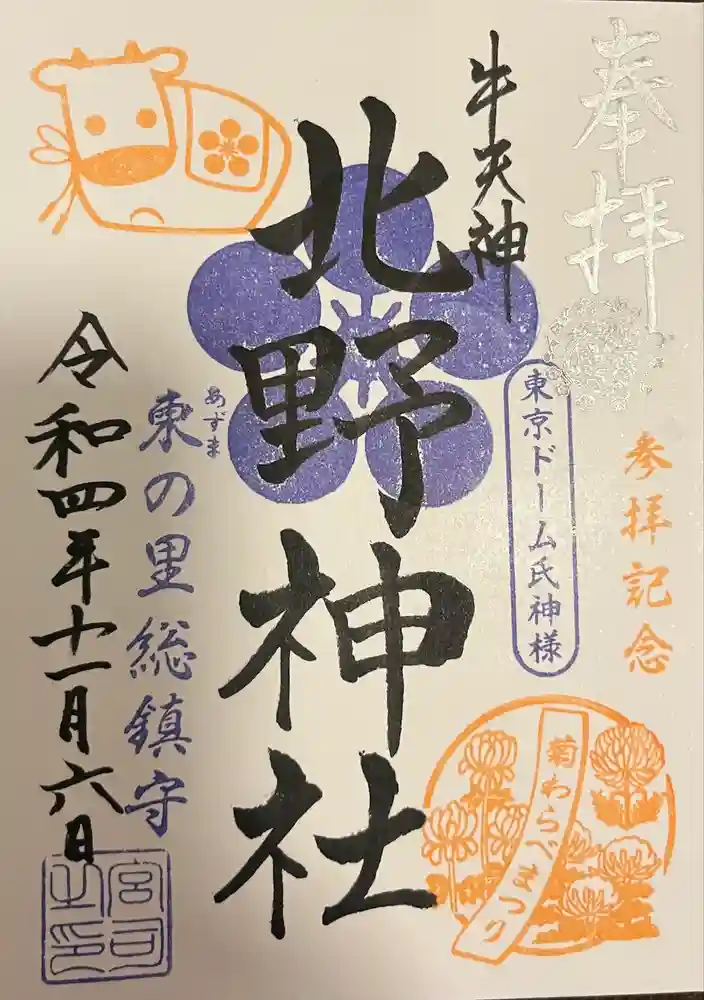 奉拝
参拝記念
菊わらべまつり
東京ドーム氏神様
牛天神
北野神社
あずま
東の里総鎮守
令和四年十一月六日
宮司之印